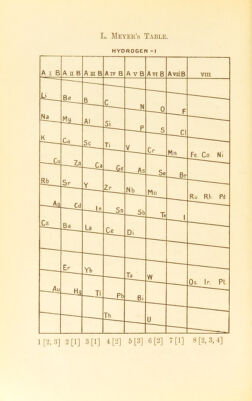 L. MEYER'S TABLE.
HYDROGEN - 1
A I B A II B A III B A IV B A V B A VI B A VII B VIII
Li Be B C N O F
Na Mg Al Si P S Cl
K Ca Sc Ti V Cr Mn Fe Co Ni
Cu Zn Ga Ge As Se Br
Rb Sr Y Zr Nb Mo Ru Rh Pd
Ag Cd In Sn Sb Te I
Cs Ba La Ce Di
Er Yb Ta W Os Ir Pt
Au Hg Tl Pb Bi
Th U
1 [2, 3] 2 [1] 3 [1] 4 [2] 5 [3] 6 [2] 7 [1] 8 [2, 3, 4]